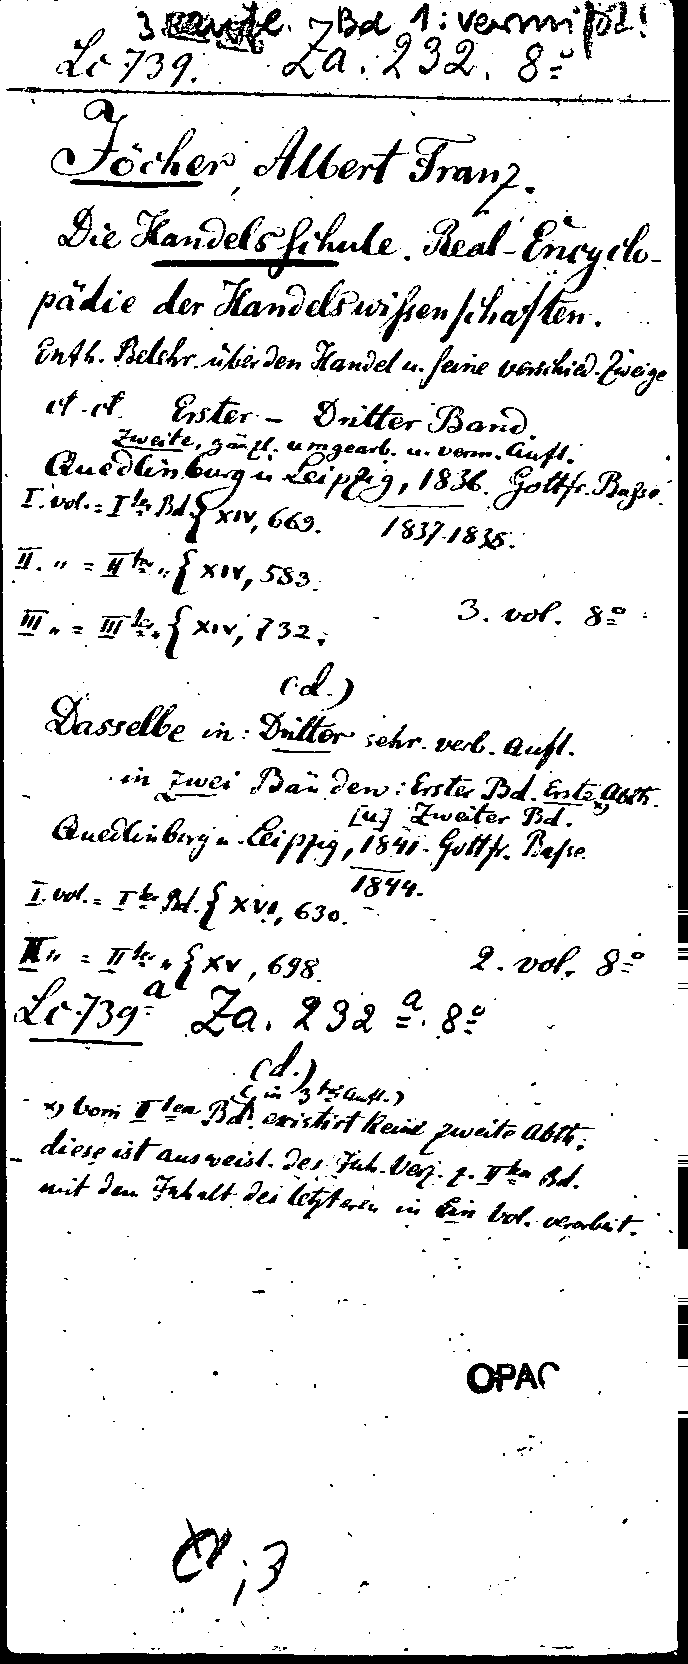 3 Bd 1: vermißt!
Lc 739. Za. 232. 8º
Jöcher, Albert Franz.
Die Handelsschule. Real-Encyclo-
pädie der Handelswissenschaften.
Enth. Belehr. über den Handel u. seine verschied. Zweige
et. ct. Erster - Dritter Band.
Zweite, gänzl. umgearb. u. verm. Aufl.
Quedlinburg u Leipzig, 1836. Gottfr. Basse.
1837. 1838.
I. vol. = Iter Bd. { XIV, 669.
II. „ = IIter „ { XIV, 583.
III „ = IIIter „ { XIV, 732.
3. vol. 8º
(d.)
Dasselbe in: Dritter sehr. verb. Aufl.
in Zwei Bänden: Erster Bd. Erste x) Abth.
[u] Zweiter Bd.
Quedlinburg u. Leipzig, 1841. Gottfr. Basse.
1844.
I. vol. = Iter Bd. { XVI, 630.
II „ = IIter „ { XV, 698.
2. vol. 8º
Lc 739a Za. 232 a. 8º
(d.)
(in 3ter Aufl.)
x) Vom IIten Bd. existirt keine zweite Abth.;
diese ist ausweisl. des Inh. Verz. z. IIten Bd.
mit dem Inhalt des letzteren in Ein Vol. verarbeit.
OPAC
XV ; 3